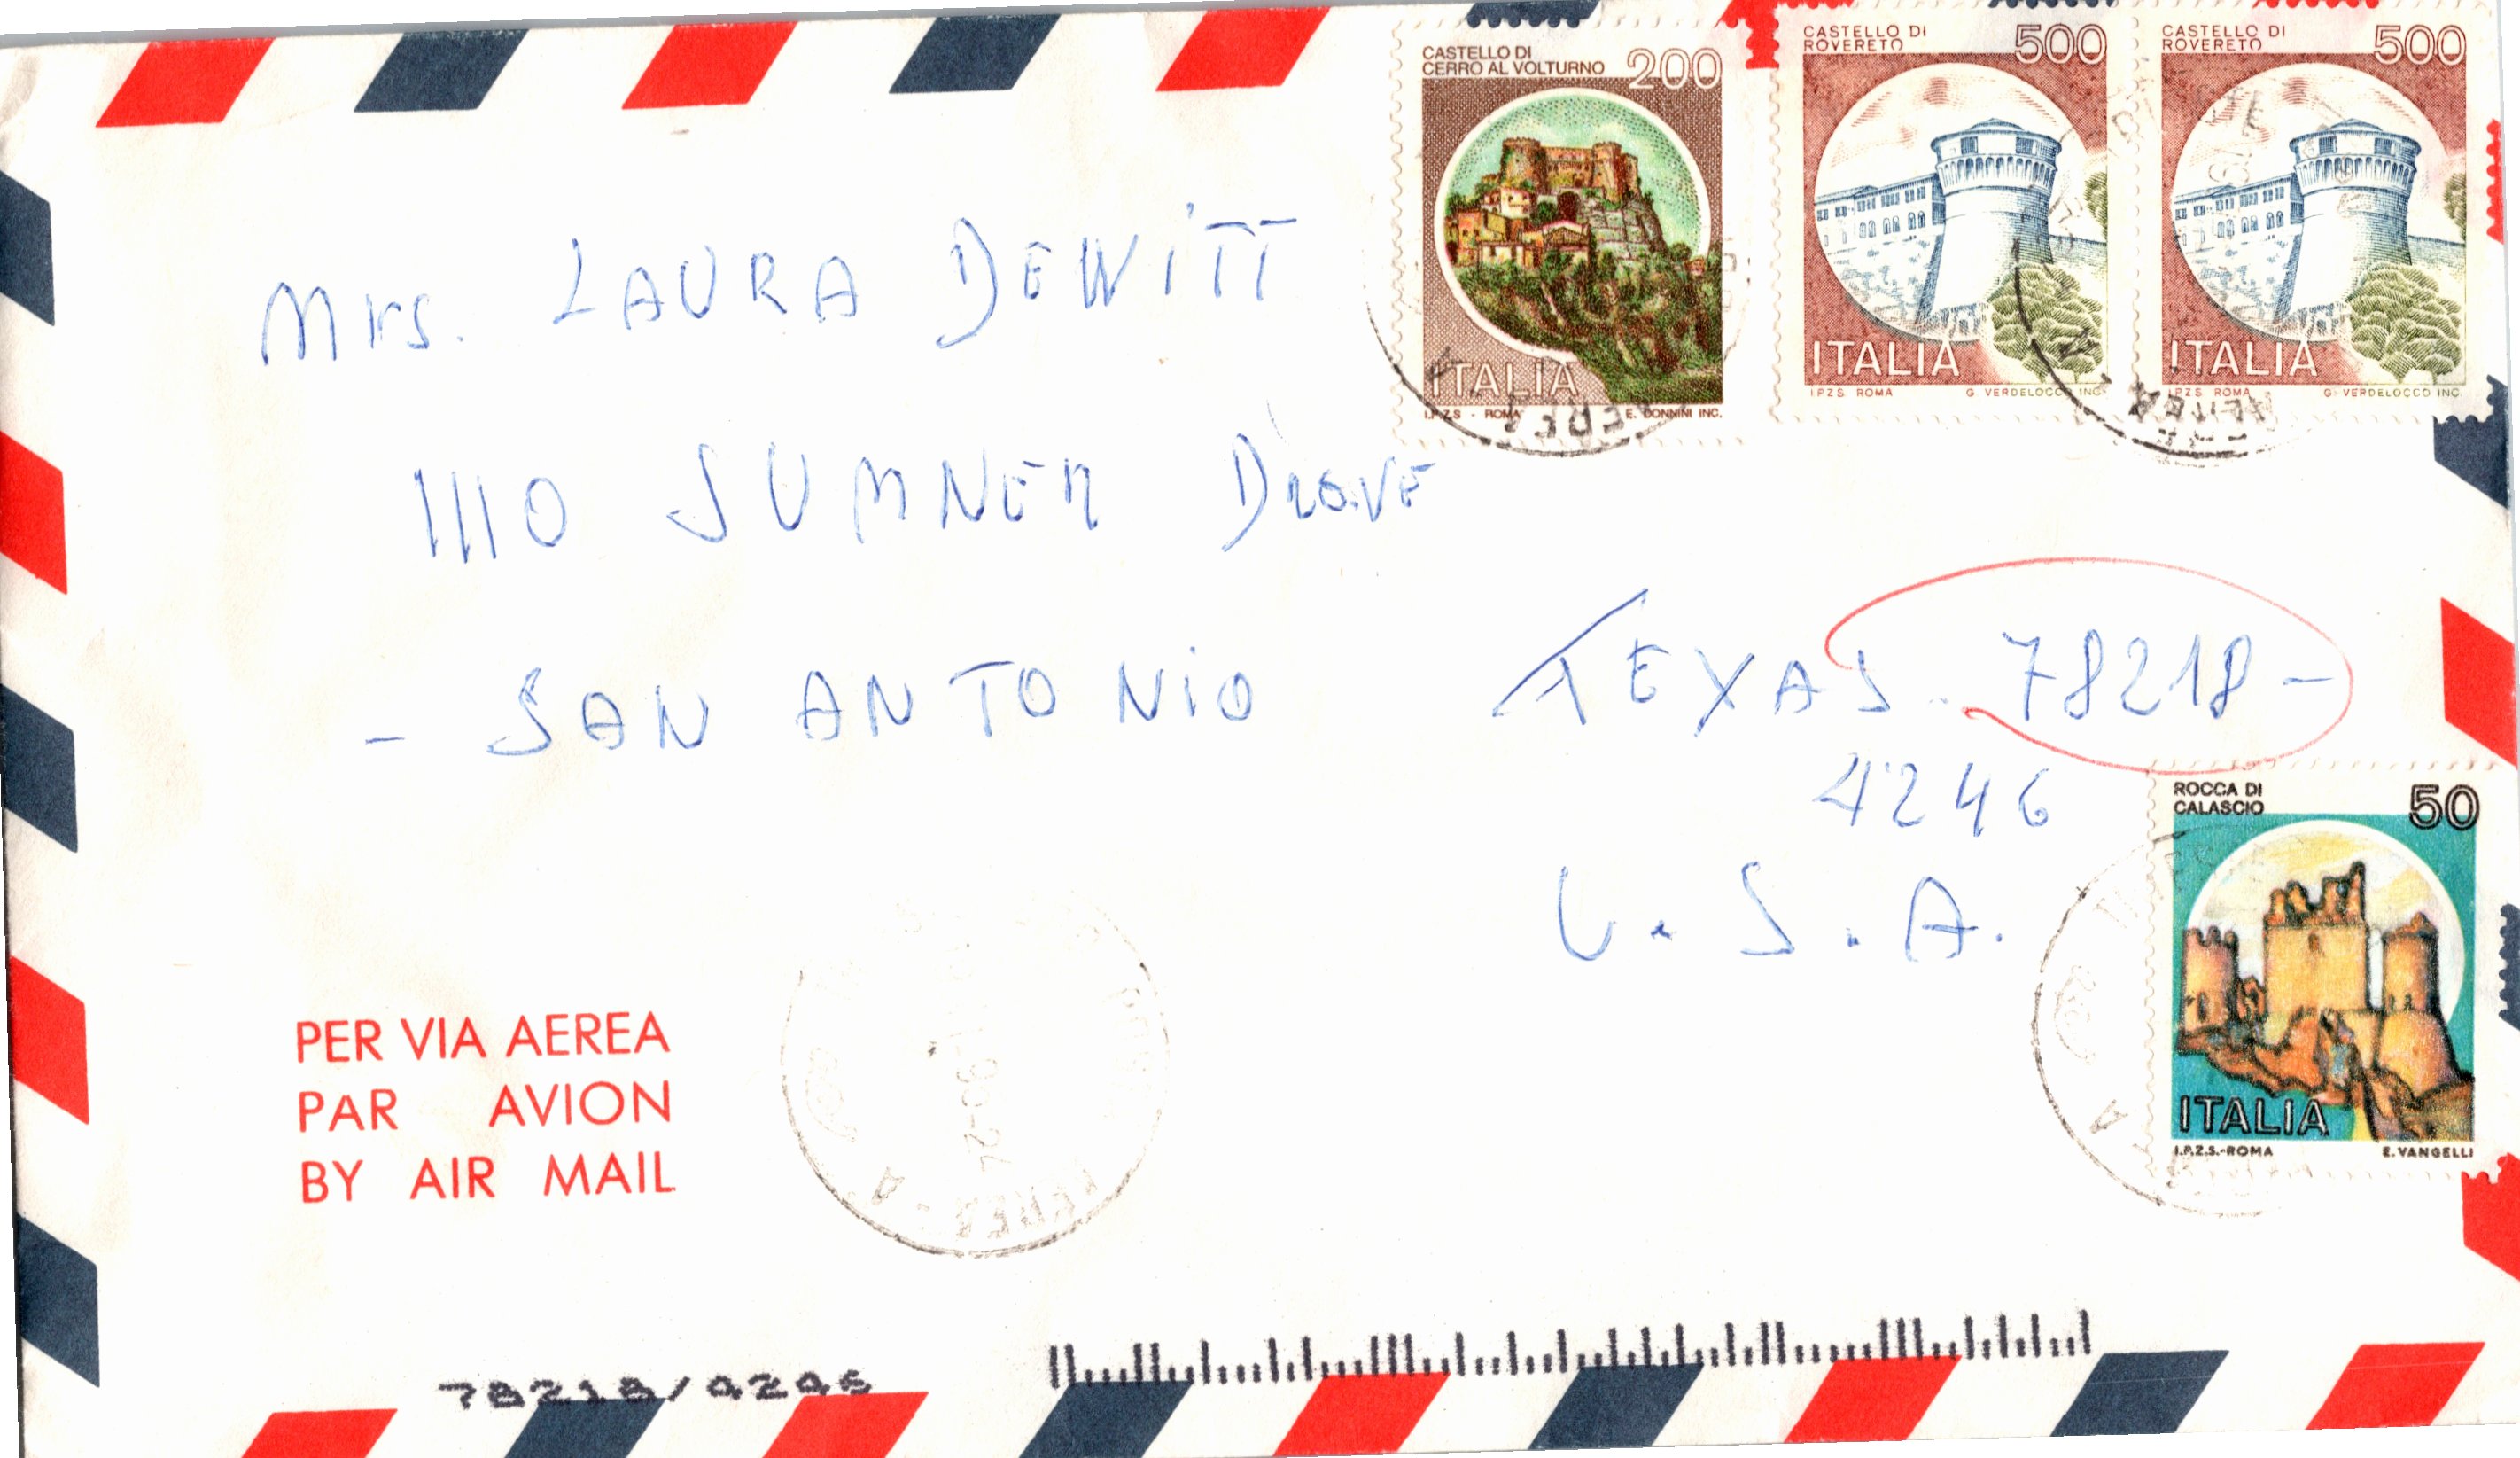 CASTELLO DI
CERRO AL VOLTURNO 200
ITALIA
I.P.Z.S - ROMA E. DONNINI INC.
CASTELLO DI
ROVERETO 500
ITALIA
I.P.Z.S ROMA G. VERDELOCCO INC.
CASTELLO DI
ROVERETO 500
ITALIA
I.P.Z.S ROMA G. VERDELOCCO INC.
Mrs. LAURA DEWITT
1110 SUMNER
- SAN ANTONIO TEXAS - 78218 -
4246
U.S.A.
ROCCA DI
CALASCIO 50
ITALIA
I.P.Z.S.-ROMA E. VANGELLI
PER VIA AEREA
PAR AVION
BY AIR MAIL
AEREA - A
78218/4246